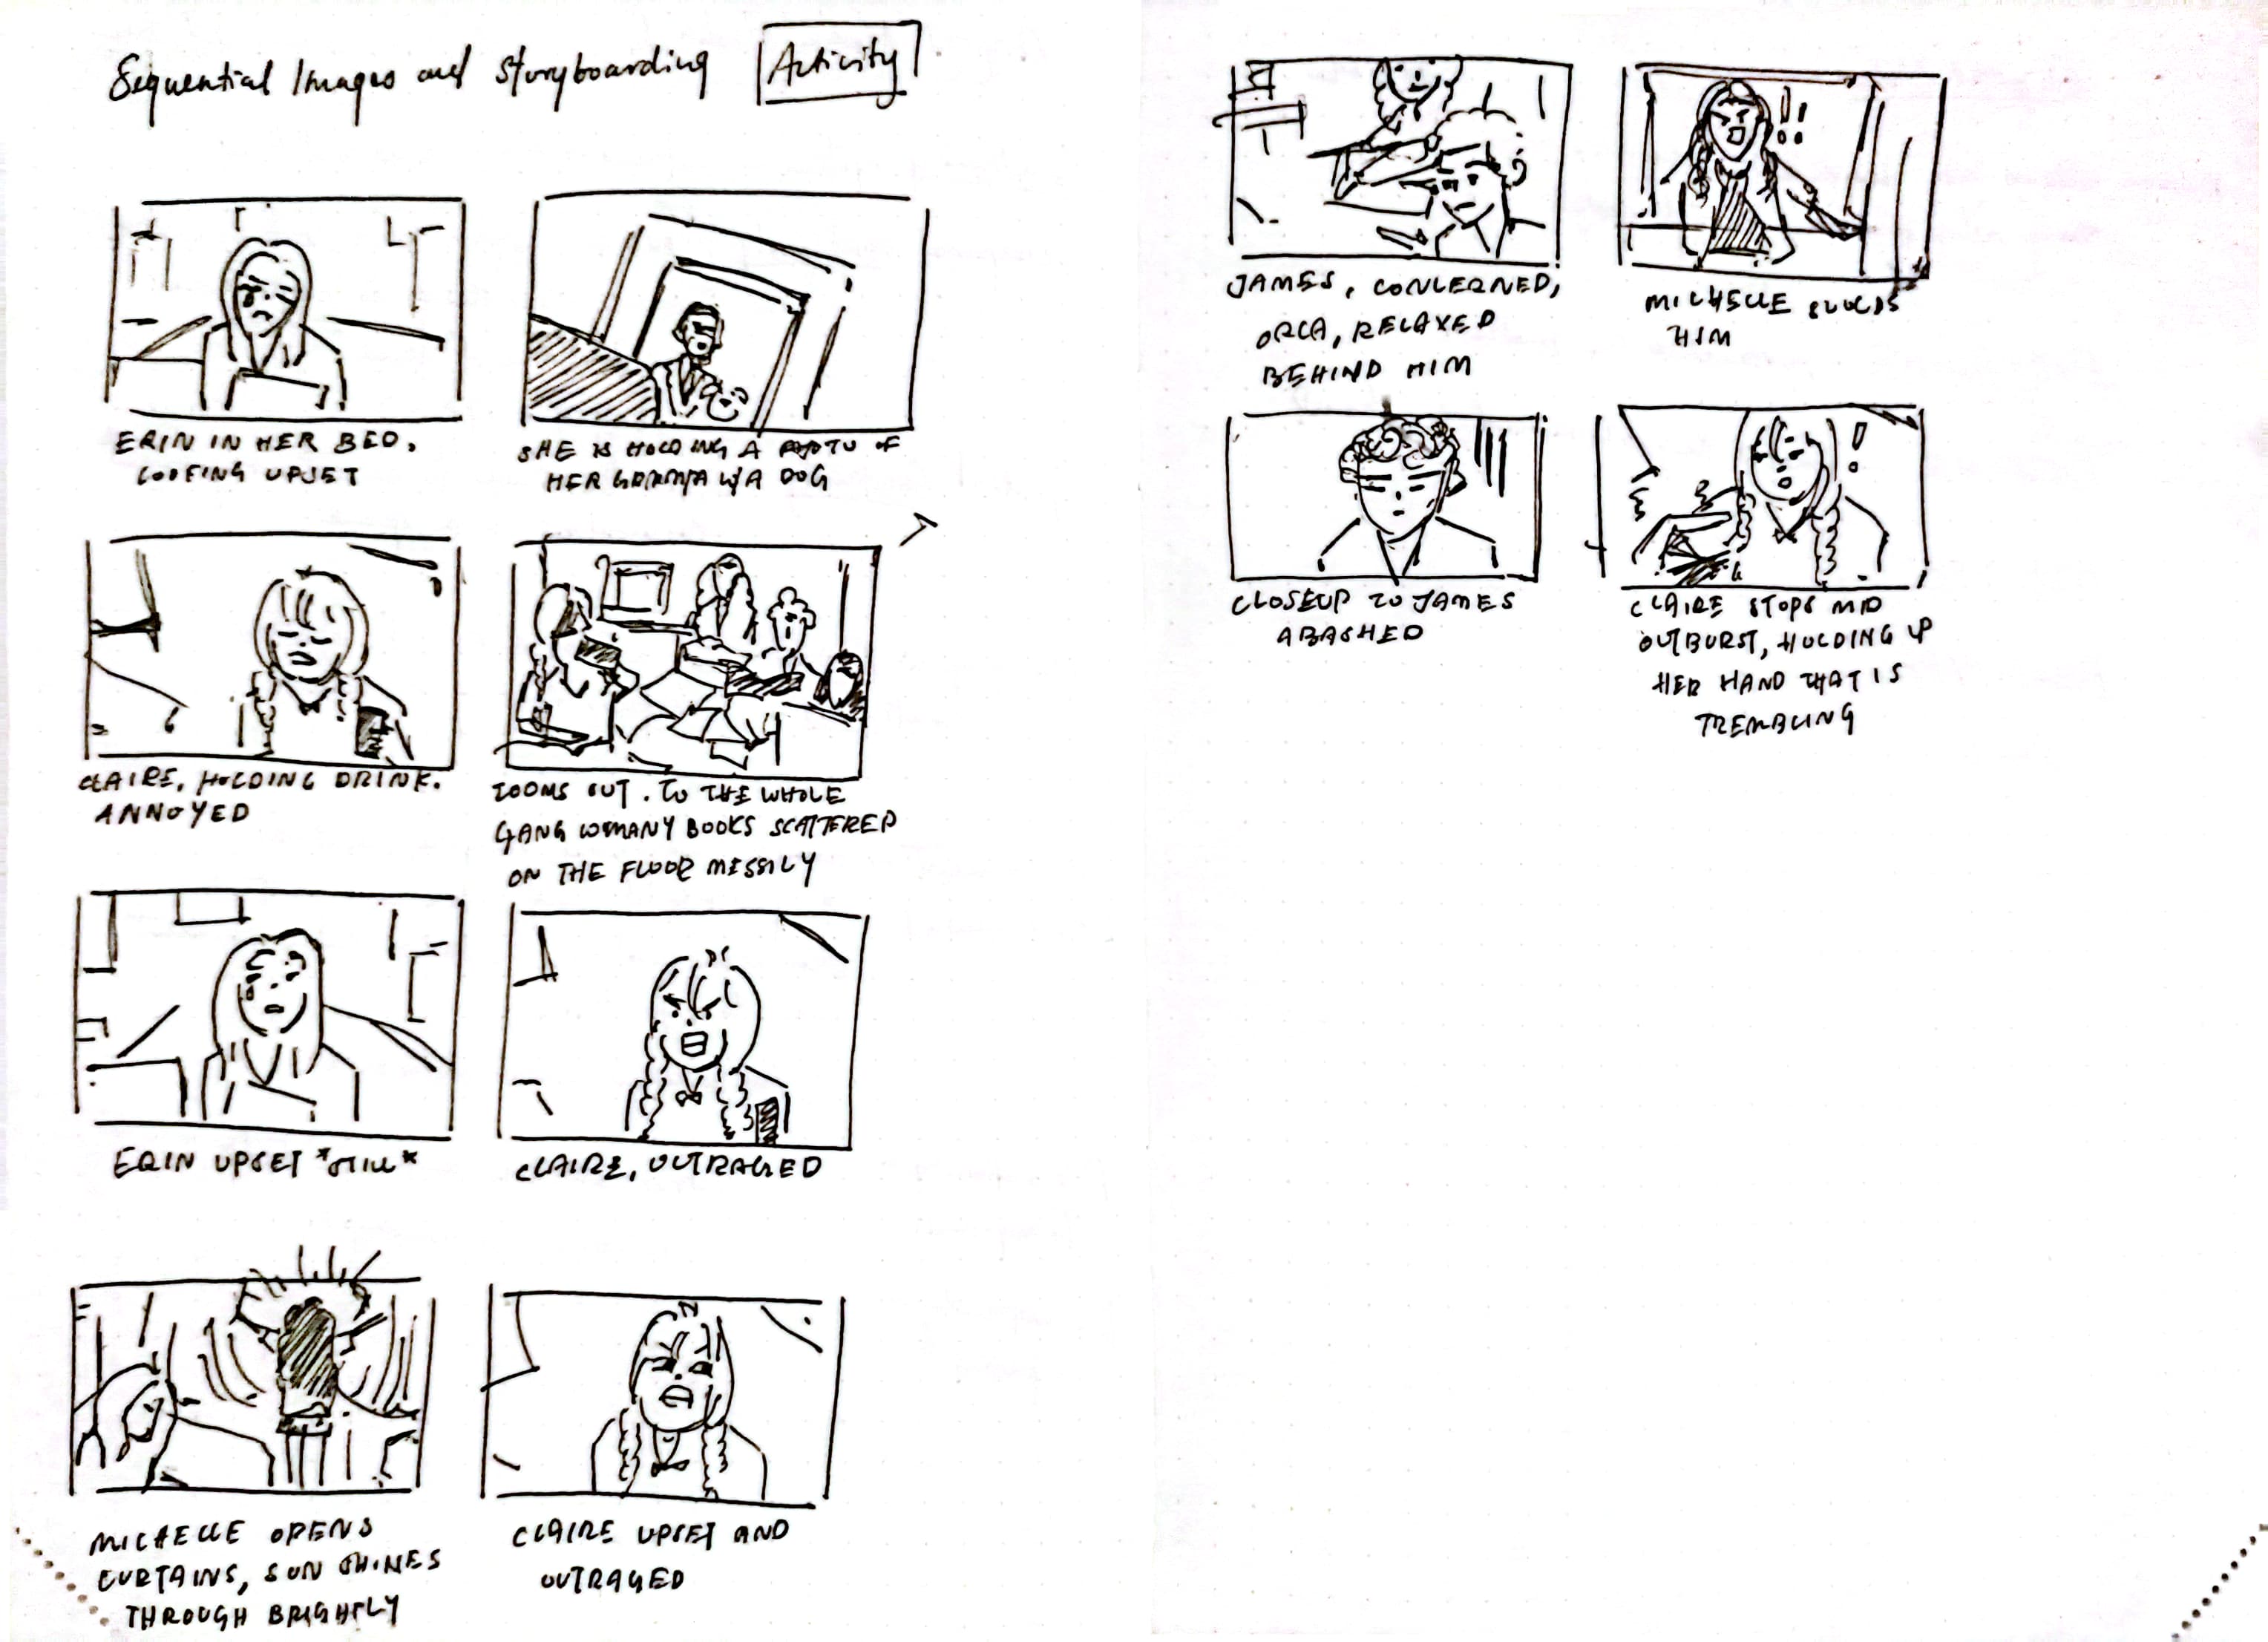 Sequential Images and Storyboarding
Activity
ERIN IN HER BED,
LOOKING UPSET
SHE IS HOLDING A PHOTO OF
HER GRANDPA W/A DOG
CLAIRE, HOLDING DRINK.
ANNOYED
ZOOMS OUT. TO THE WHOLE
GANG W MANY BOOKS SCATTERED
ON THE FLOOR MESSILY
ERIN UPSET *STILL*
CLAIRE, OUTRAGED
MICHELLE OPENS
CURTAINS, SUN SHINES
THROUGH BRIGHTLY
CLAIRE UPSET AND
OUTRAGED
JAMES, CONCERNED,
ORLA, RELAXED
BEHIND HIM
!!
MICHELLE SCOLDS
HIM
CLOSEUP TO JAMES
ABASHED
!
CLAIRE STOPS MID
OUTBURST, HOLDING UP
HER HAND THAT IS
TREMBLING